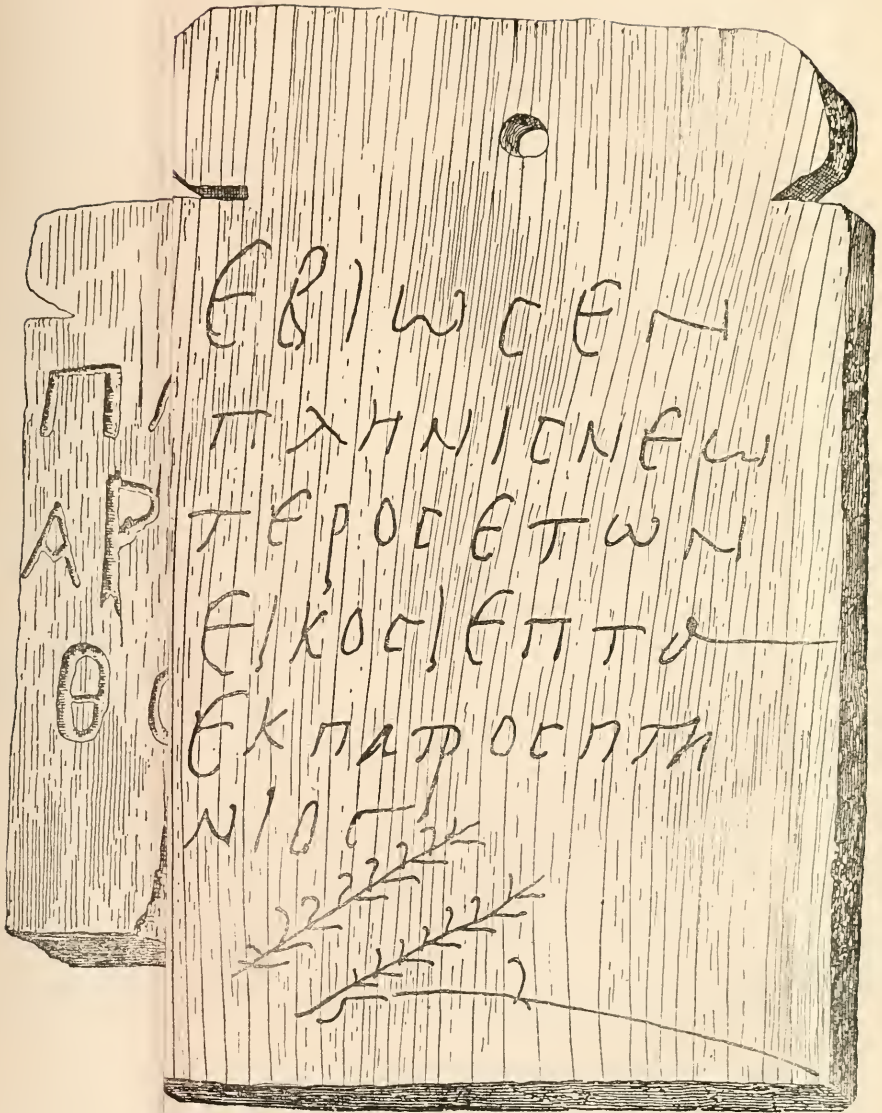 ΕΒΙΩCΕΝ
ΠΛΗΝΙCΝΕΩ
ΤΕΡΟCΕΤΩΝ
ΕΙΚΟCΙΕΠΤΑ
ΕΚΠΑΤΡΟCΠΤΗ
ΝΙΟC
Π
ΑΡ
Θ